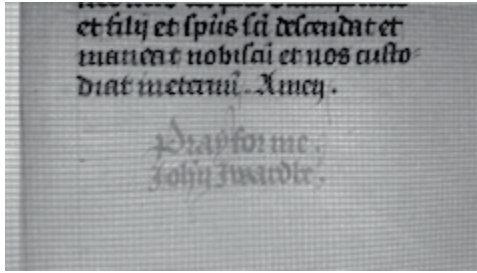 et filij et spūs scī descendat et
maneat nobiscū et nos custo
diat in eternū. Amen.
Pray for me.
John